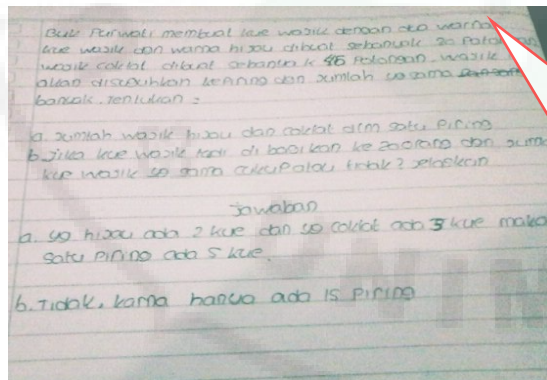 Buk Purwati membuat kue wasik dengan dua warna
kue wasik dan warna hijau dibuat sebanyak 30 Potongan
wasik coklat dibuat sebanyak 45 Potongan. wasik
akan disuguhkan Piring dan jumlah yg sama
banyak. Tentukan :
a. Jumlah wasik hijau dan coklat dlm satu Piring
b. Jika kue wasik tadi di bagikan ke orang dan
kue wasik yg sama cukup atau tidak? Jelaskan
Jawaban
a. yg hijau ada 2 kue dan yg coklat ada 3 kue maka
satu Piring ada 5 kue.
b. Tidak, karna hanya ada 15 Piring